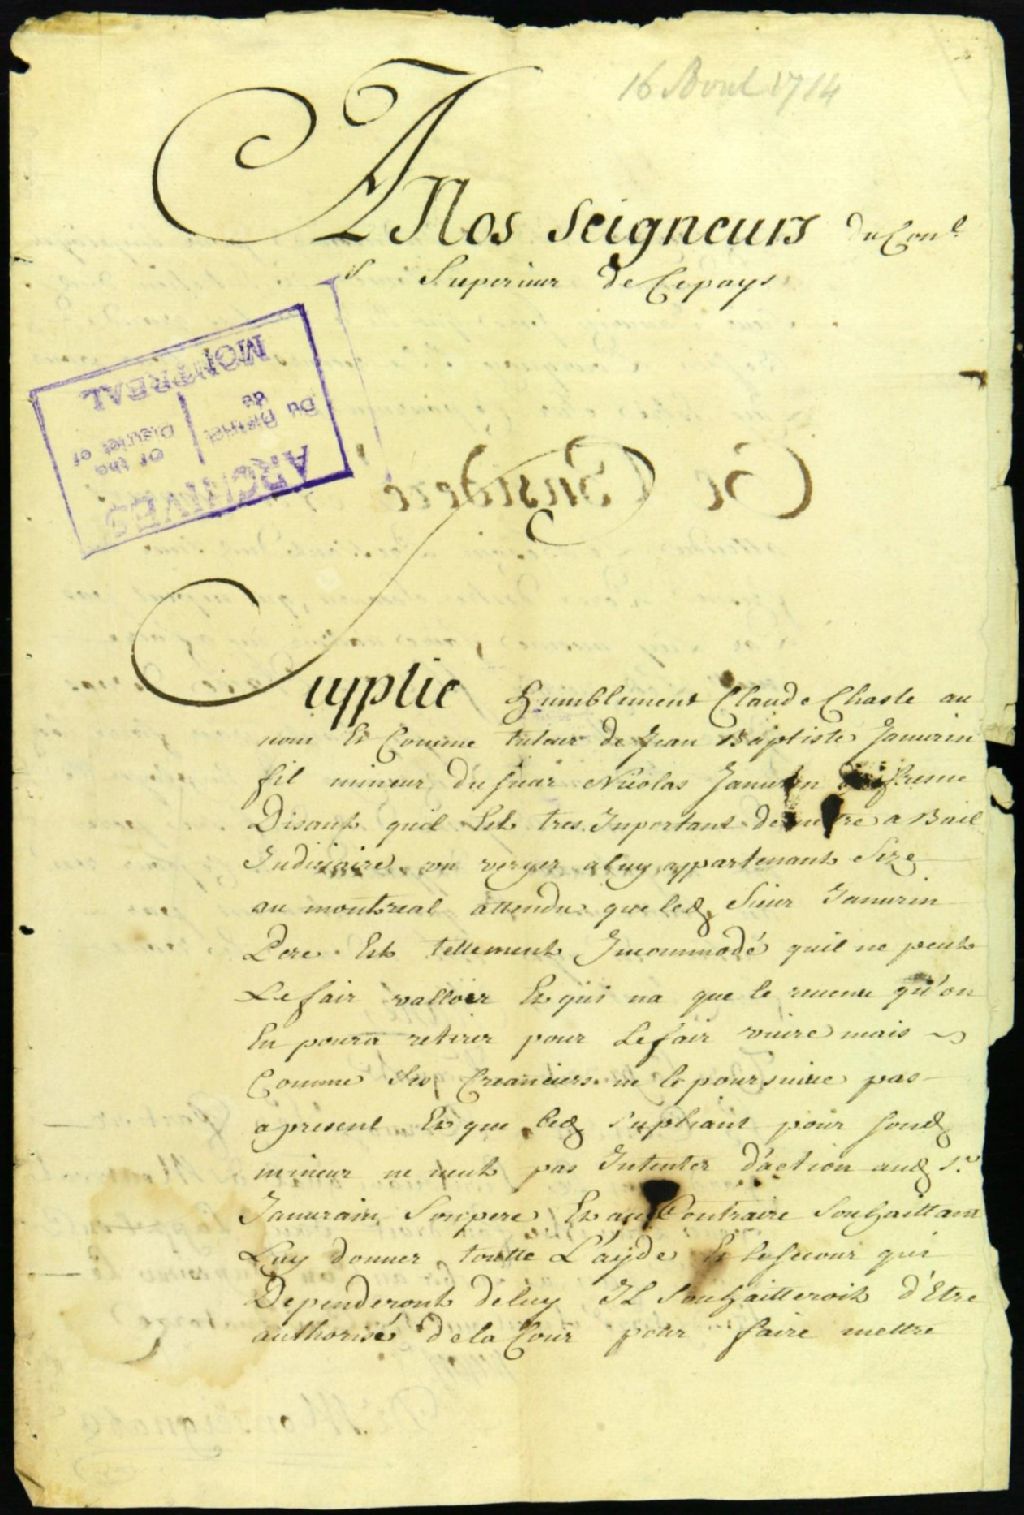 16 Aout 1714
A Nos Seigneurs du Con.l
Superieur de Cepays
ARCHIVES
Of the Du District
District of de
MONTREAL
Supplie humblement Claude Chasle au
nom Et Comme tuteur de Jean Baptiste Janurin
fil mineur du sieur Nicolas Janurin
Disant quil Est tres Inportant de metre a Bail
Judiciaire un verger a luy appartenant Size
au montreal attendu que led. Sieur Janurin
Pere Est tellement Jncommodé quil ne peut
Le fair valloir Et qui na que le revenu qu'on
En poura retirer pour Le fair vivre mais
Comme Ses Creanciers ne le poursuive pas
apresent Et que led. supliant pour sond.
mineur ne veut pas Intenter d'action aud. S.r
Janurain Son pere Et au Contraire Souhaittant
Luy donner toutte L'ayde Et le secour qui
Dependeront de luy Il Souhaitteroit d'Etre
authorisé de la Cour pour faire mettre